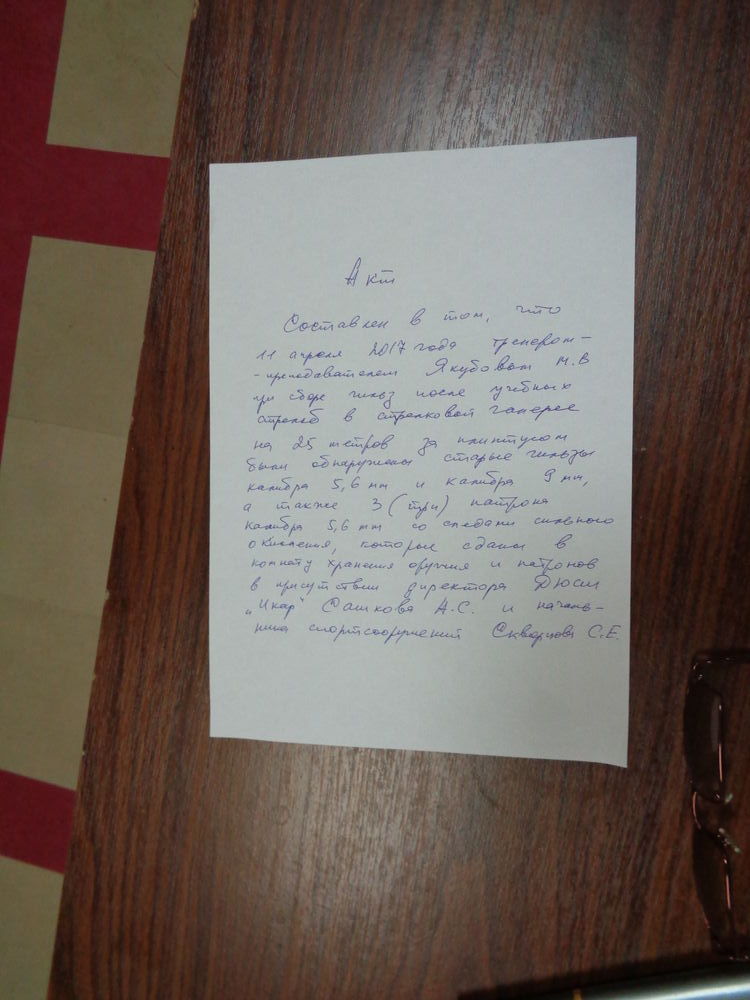 Акт
Составлен в том, что
11 апреля 2017 года тренером-
-преподавателем Якубовым М.В
при сборе гильз после учебных
стрельб в стрелковой галерее
на 25 метров за плинтусом
были обнаружены старые гильзы
калибра 5,6 мм и калибра 9 мм,
а также 3 (три) патрона
калибра 5,6 мм со следами сильного
окисления, которые сданы в
комнату хранения оружия и патронов
в присутствии директора ДЮСШ
„Икар" Сашкова А.С. и началь-
ника спортсооружений Скворцова С.Е.